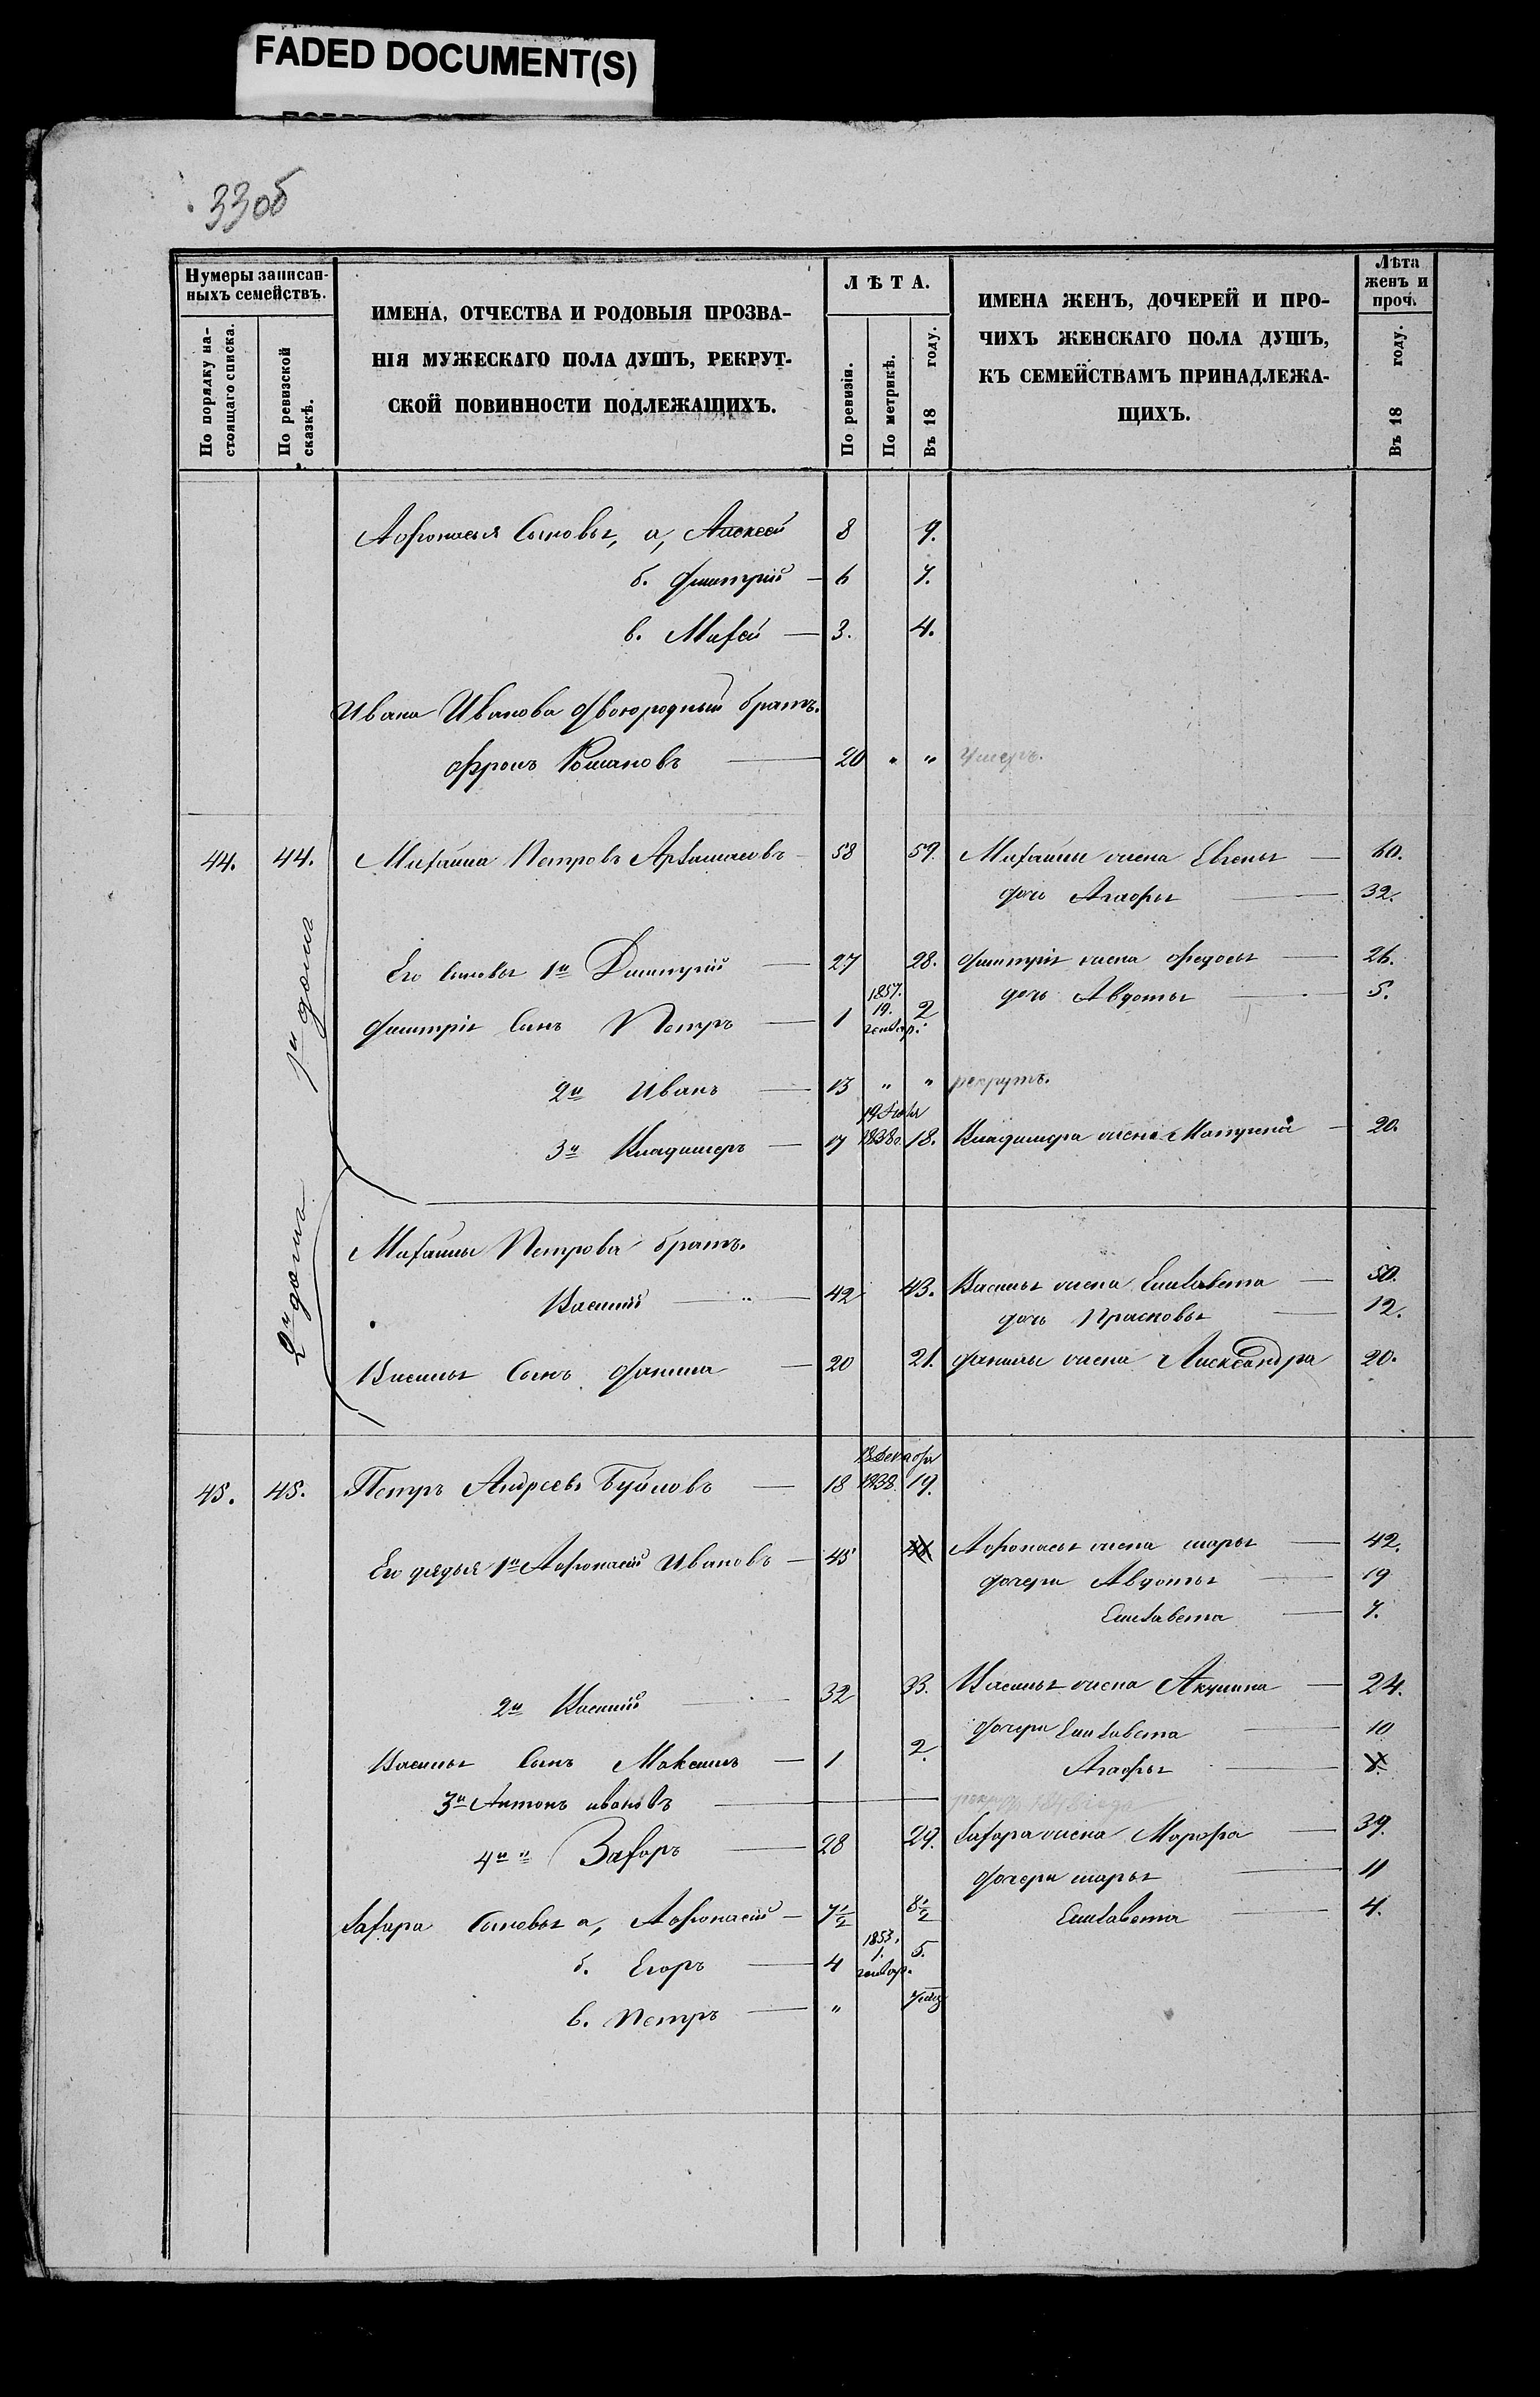 FADED DOCUMENT(S)
33об
Нумеры записан-
ныхъ семействъ.
По порядку на-
стоящаго списка.
По ревизской
сказкѣ.
ИМЕНА, ОТЧЕСТВА И РОДОВЫЯ ПРОЗВА-
НІЯ МУЖЕСКАГО ПОЛА ДУШЪ, РЕКРУТ-
СКОЙ ПОВИННОСТИ ПОДЛЕЖАЩИХЪ.
ЛѢТА.
По ревизіи.
По метрикѣ.
Въ 18 году.
ИМЕНА ЖЕНЪ, ДОЧЕРЕЙ И ПРО-
ЧИХЪ ЖЕНСКАГО ПОЛА ДУШЪ,
КЪ СЕМЕЙСТВАМЪ ПРИНАДЛЕЖА-
ЩИХЪ.
Лѣта
женъ и
проч.
Въ 18 году.
Афонасья Сыновья, а, Алексей 8 9.
б. Дмитрій 6 7.
в. Михей 3. 4.
Ивана Иванова двоюродный братъ.
Фролъ Романовъ 20 " " умеръ.
44. 44. Михаила Петровъ 58 59. Михайлы жена Евгенья 60.
дочь Агафья 32.
1й домъ
Его сыновья 1й Дмитрій 27 28. Дмитрія жена Федосья 26.
дочь Авдотья 5.
Дмитрія Сынъ Петръ 1 1857. 19. генвар. 2.
2й Иванъ 13 " " рекрутъ.
3й Владимеръ 17 19 Іюля 1838г. 18. Владимера жена Матрена 20.
2й домъ
Михайлы Петрова братъ.
Василій 42 43. Василья жена Елизавета 50.
дочь Прасковья 12.
Василья Сынъ Данила 20 21. Данилы жена Александра 20.
45. 45. Петръ Андреевъ Буйловъ 18 18 Декабря 1838. 19.
Его дядья 1й Афонасій Ивановъ 45 Афонасья жена Марья 42.
дочери Авдотья 19
Елизавета 7.
2й Василій 32 33. Василья жена Акулина 24.
дочери Елизавета 10
Василья Сынъ Максимъ 1 2.
Агафья
3й Антонъ Ивановъ рекрутъ
4й " Захаръ 28 29. Захара жена Марфа 39.
дочери Марья 11
Захара Сыновья а, Афонасій 7½ 8½
Елизавета 4.
б. Егоръ 4 1853. 1. генвар. 5.
в. Петръ "